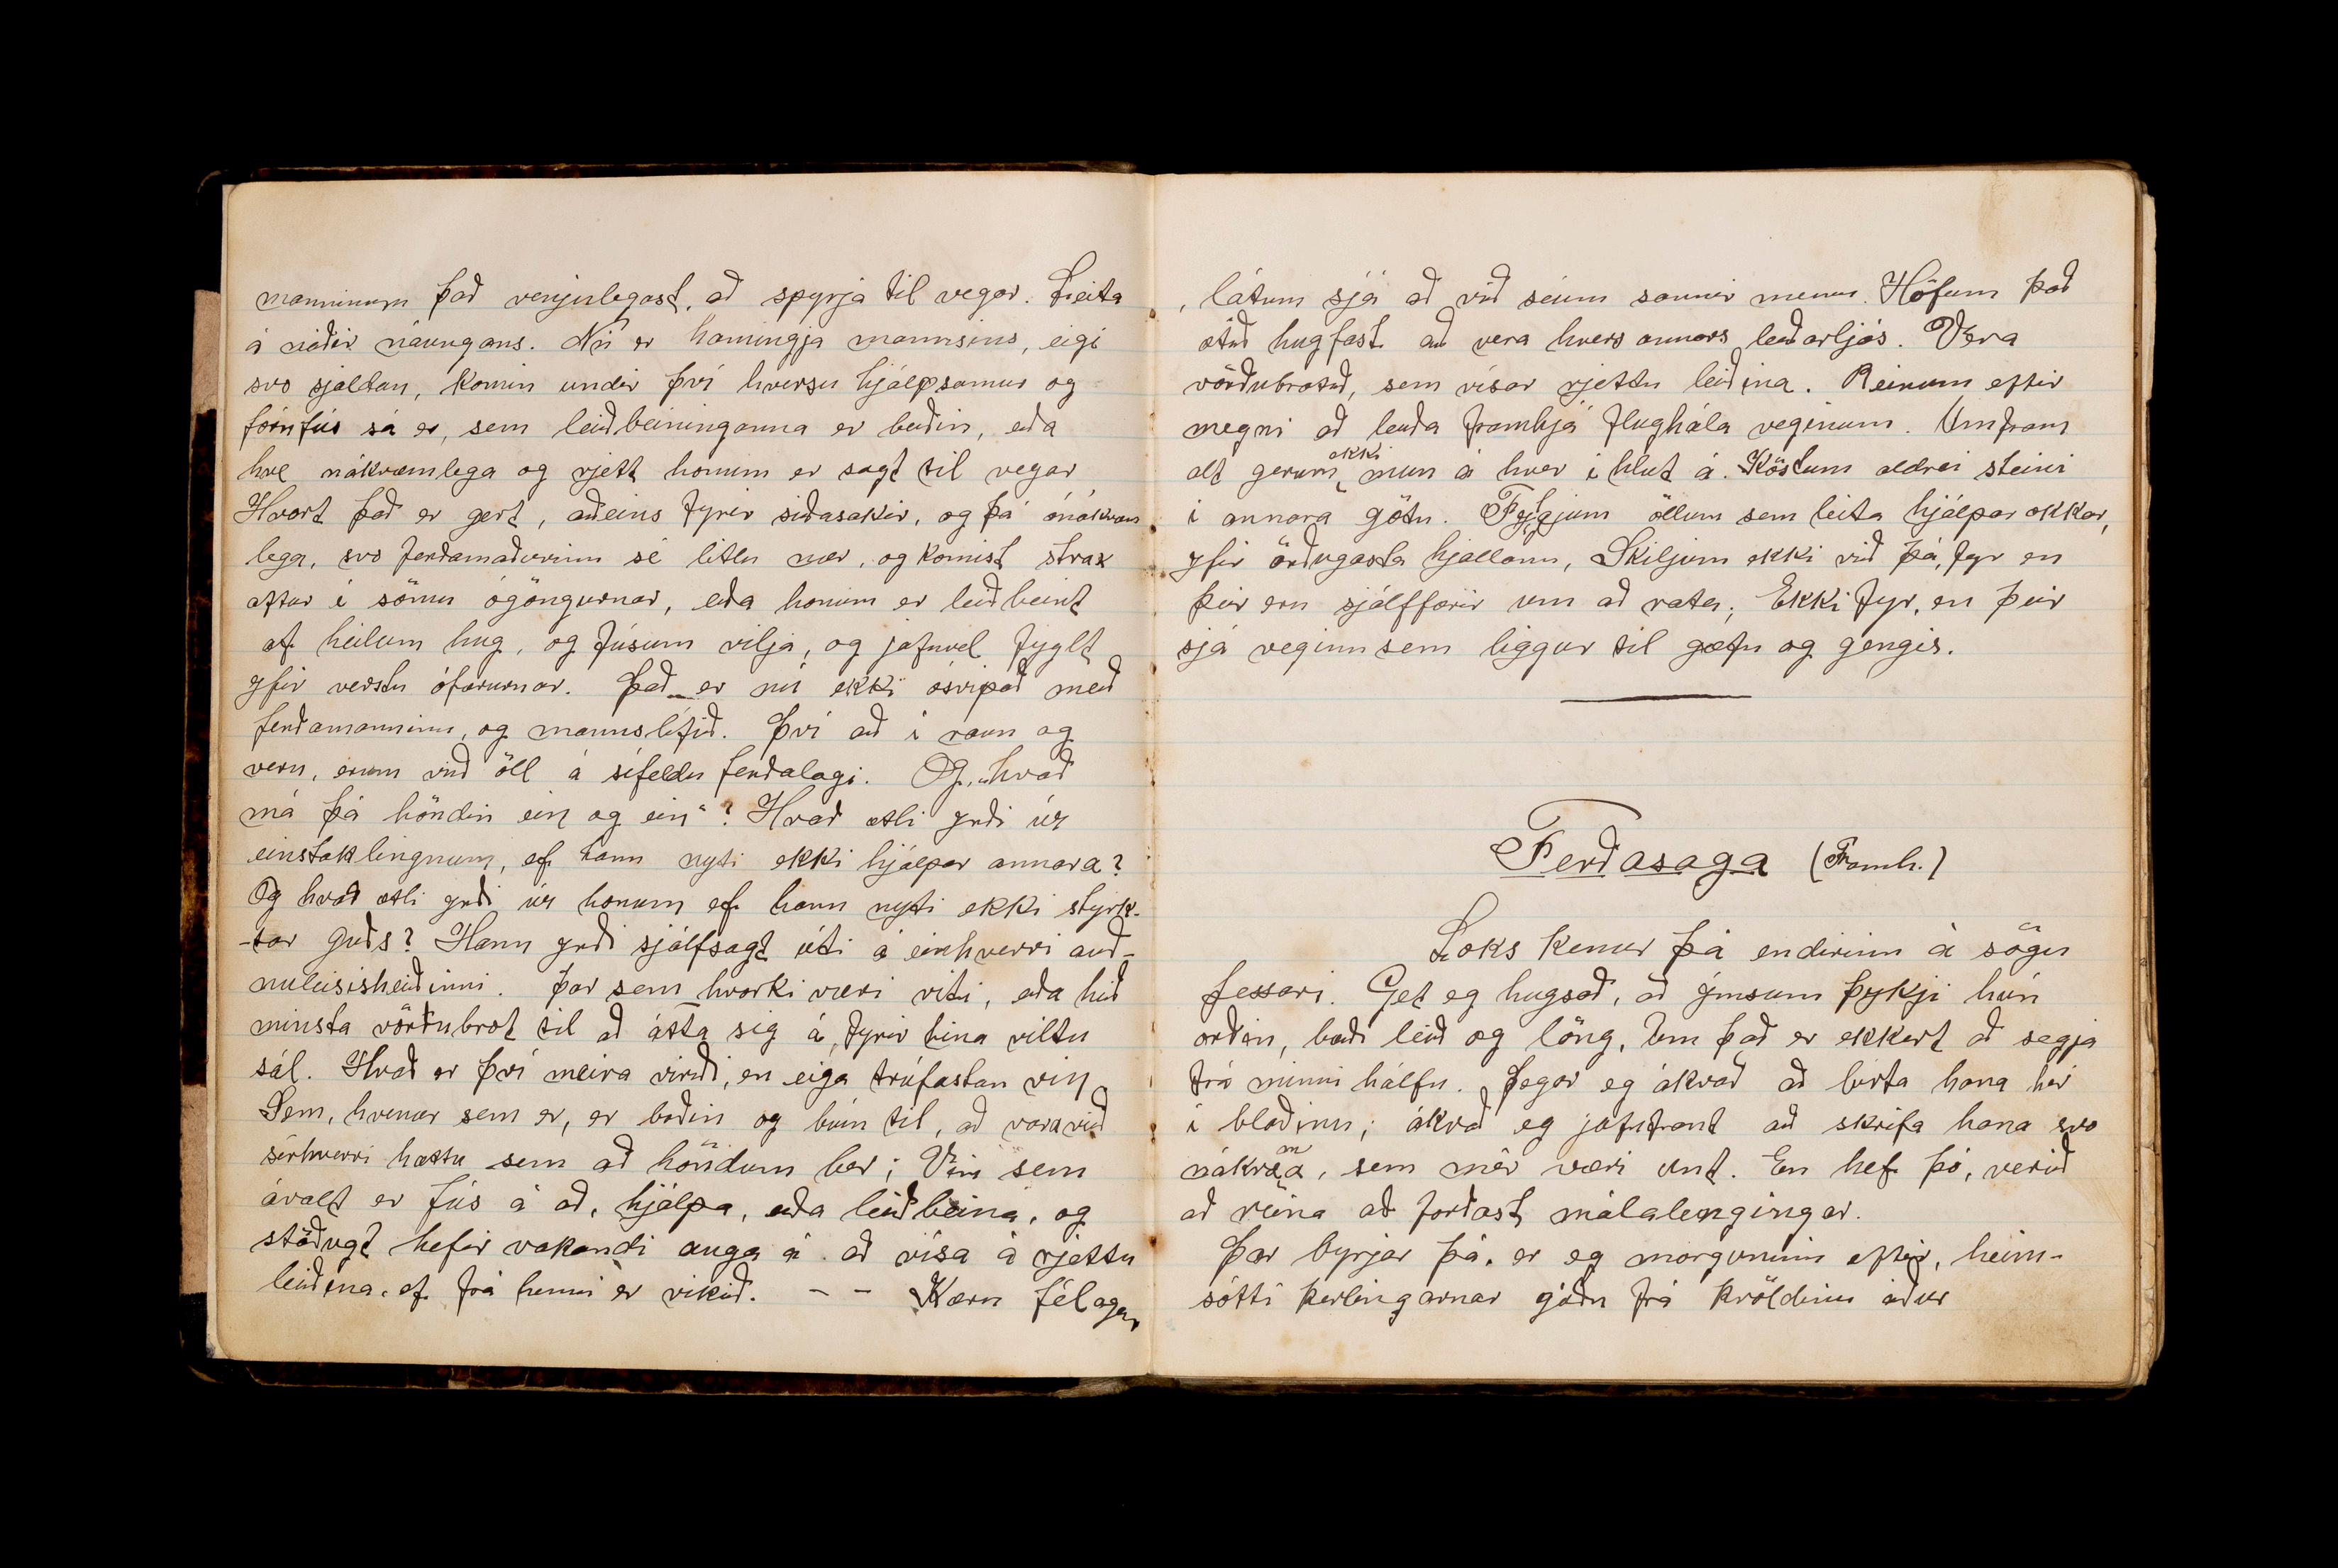 manninum það venjulegast, að spyrja til vegar. Leita
á náðir náungans. Nú er hamingja mannsins, eigi
svo sjaldan, komin undir því hversu hjálpsamur og
fórnfús sá er, sem leiðbeininganna er beðin, eða
hve nákvæmlega og rjett honum er sagt til vegar
Hvort það er gert, aðeins fyrir siðasakir, og þá ónákvæm
lega, svo ferðamaðurinn sé litlu nær, og komist strax
aftur í sömu ógöngurnar, eða honum er leiðbeint
af heilum hug, og fúsum vilja, og jafnvel fyglt
yfir verstu ófærurnar. Það er nú ekki ósvipað með
ferðamanninn, og mannslífið. Því að í raun og
veru, erum við öll á sífeldu ferðalagi. Og, „hvað
má þá höndin ein og ein“? Hvað ætli yrði úr
einstaklingnum, ef hann nyti ekki hjálpar annara?
Og hvað ætli yrði úr honum ef hann nyti ekki styrk-
-tar guðs? Hann yrði sjálfsagt úti á einhverri auð-
nuleisisheiðinni. Þar sem hvorki væri viti, eða hið
minsta vörðubrot til að átta sig á, fyrir hina viltu
sál. Hvað er því meira virði, en eiga trúfastan vin
Sem, hvenær sem er, er boðin og búin til, að vara við
sérhverri hættu sem að höndum ber; Vin sem
ávalt er fús á að, hjálpa, eða leiðbeina, og
stöðugt hefir vakandi auga á að vísa á rjettu
leiðina. ef frá henni er vikið. - - Kæru félagar
, látum sjá að við séum sannir menn. Höfum það
ætíð hugfast að vera hvers annars leiðarljós. Vera
vörðubrotið, sem vísar rjettu leiðina. Reinum eftir
megni að leiða framhjá flughála veginum. Umfram
alt gerum ekki mun á hver í hlut á. Köstum aldrei steini
í annara götu. Fylgjum öllum sem leita hjálpar okkar,
yfir örðugasta hjallann, Skiljum ekki við þá, fyr en
þeir eru sjálffærir um að rata; Ekki fyr, en þeir
sjá veginn sem liggur til gæfu og gengis.
Ferðasaga (Framh.)
Loks kemur þá endirinn á sögu
þessari. Get eg hugsað, að ýmsum þykji hún
orðin, bæði leið og löng, Um það er ekkert að segja
frá minni hálfu. Þegar eg ákvað að birta hana hér
í blaðinu; ákvað eg jafnframt að skrifa hana svo
nákvæma, sem mér væri unt. En hef þó, verið
að reina að forðast málalengingar.
Þar byrjar þá, er eg morguninn eftir, heim-
sótti kerlingarnar góðu frá kvöldinu áður